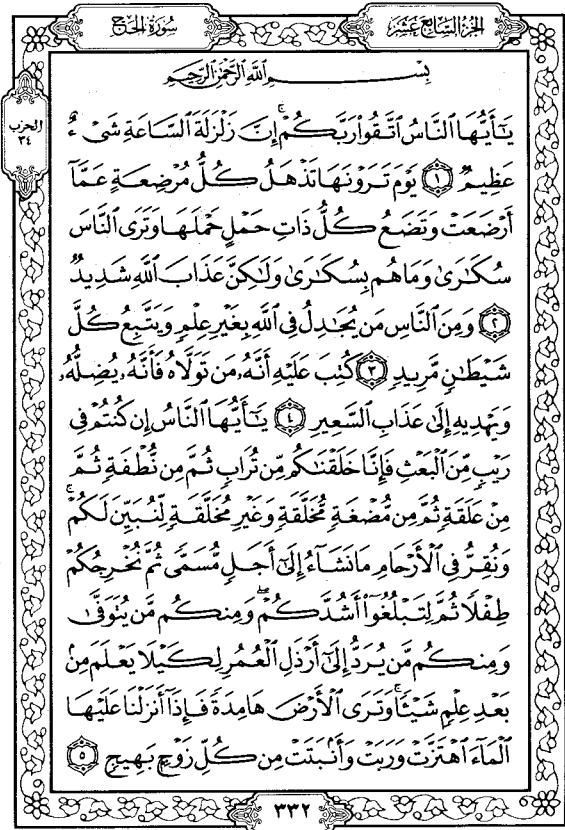 الجزء السابع عشر
سورة الحج
الحزب
٣٤
بِسْمِ اللَّهِ الرَّحْمَٰنِ الرَّحِيمِ
يَٰٓأَيُّهَا ٱلنَّاسُ ٱتَّقُوا۟ رَبَّكُمْ ۚ إِنَّ زَلْزَلَةَ ٱلسَّاعَةِ شَىْءٌ
عَظِيمٌ ١ يَوْمَ تَرَوْنَهَا تَذْهَلُ كُلُّ مُرْضِعَةٍ عَمَّآ
أَرْضَعَتْ وَتَضَعُ كُلُّ ذَاتِ حَمْلٍ حَمْلَهَا وَتَرَى ٱلنَّاسَ
سُكَٰرَىٰ وَمَا هُم بِسُكَٰرَىٰ وَلَٰكِنَّ عَذَابَ ٱللَّهِ شَدِيدٌ
٢ وَمِنَ ٱلنَّاسِ مَن يُجَٰدِلُ فِى ٱللَّهِ بِغَيْرِ عِلْمٍ وَيَتَّبِعُ كُلَّ
شَيْطَٰنٍ مَّرِيدٍ ٣ كُتِبَ عَلَيْهِ أَنَّهُۥ مَن تَوَلَّاهُ فَأَنَّهُۥ يُضِلُّهُۥ
وَيَهْدِيهِ إِلَىٰ عَذَابِ ٱلسَّعِيرِ ٤ يَٰٓأَيُّهَا ٱلنَّاسُ إِن كُنتُمْ فِى
رَيْبٍ مِّنَ ٱلْبَعْثِ فَإِنَّا خَلَقْنَٰكُم مِّن تُرَابٍ ثُمَّ مِن نُّطْفَةٍ ثُمَّ
مِنْ عَلَقَةٍ ثُمَّ مِن مُّضْغَةٍ مُّخَلَّقَةٍ وَغَيْرِ مُخَلَّقَةٍ لِّنُبَيِّنَ لَكُمْ ۚ
وَنُقِرُّ فِى ٱلْأَرْحَامِ مَا نَشَآءُ إِلَىٰٓ أَجَلٍ مُّسَمًّى ثُمَّ نُخْرِجُكُمْ
طِفْلًا ثُمَّ لِتَبْلُغُوٓا۟ أَشُدَّكُمْ ۖ وَمِنكُم مَّن يُتَوَفَّىٰ
وَمِنكُم مَّن يُرَدُّ إِلَىٰٓ أَرْذَلِ ٱلْعُمُرِ لِكَيْلَا يَعْلَمَ مِنۢ
بَعْدِ عِلْمٍ شَيْـًٔا ۚ وَتَرَى ٱلْأَرْضَ هَامِدَةً فَإِذَآ أَنزَلْنَا عَلَيْهَا
ٱلْمَآءَ ٱهْتَزَّتْ وَرَبَتْ وَأَنۢبَتَتْ مِن كُلِّ زَوْجٍۭ بَهِيجٍ ٥
٣٣٢